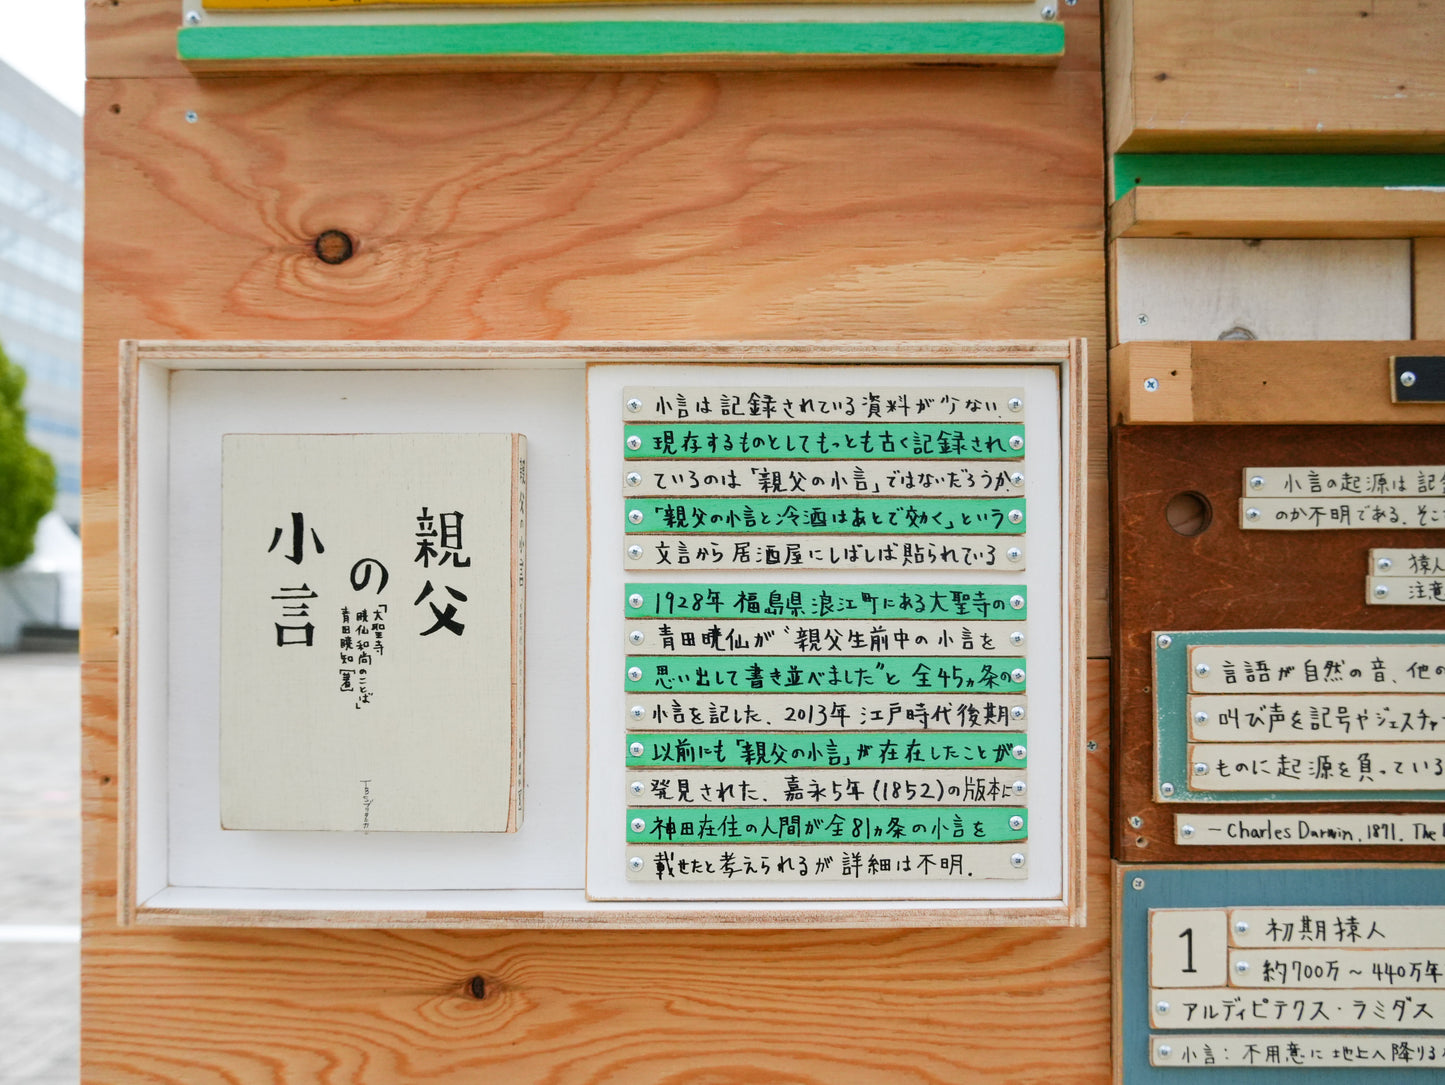 親父
の
小言
「大聖寺
暁仙和尚のことば」
青田暁知[著]
親父の小言
小言は記録されている資料が少ない、
現存するものとしてもっとも古く記録され
ているのは「親父の小言」ではないだろうか、
「親父の小言と冷酒はあとで効く」という
文言から居酒屋にしばしば貼られている
1928年福島県浪江町にある大聖寺の
青田暁仙が〝親父生前中の小言を
思い出して書き並べました〟と全45ヵ条の
小言を記した、2013年江戸時代後期
以前にも「親父の小言」が在在したことが
発見された、嘉永5年(1852)の版本に
神田在住の人間が全81ヵ条の小言を
載せたと考えられるが詳細は不明.
小言の起源は記
のか不明である.そこ
猿人
注意
言語が自然の音、他の
叫び声を記号やジェスチャ
ものに起源を負っている
— Charles Darwin, 1871, The
1
初期猿人
約700万～440万年
アルディピテクス・ラミダス
小言：不用意に地上へ降りる